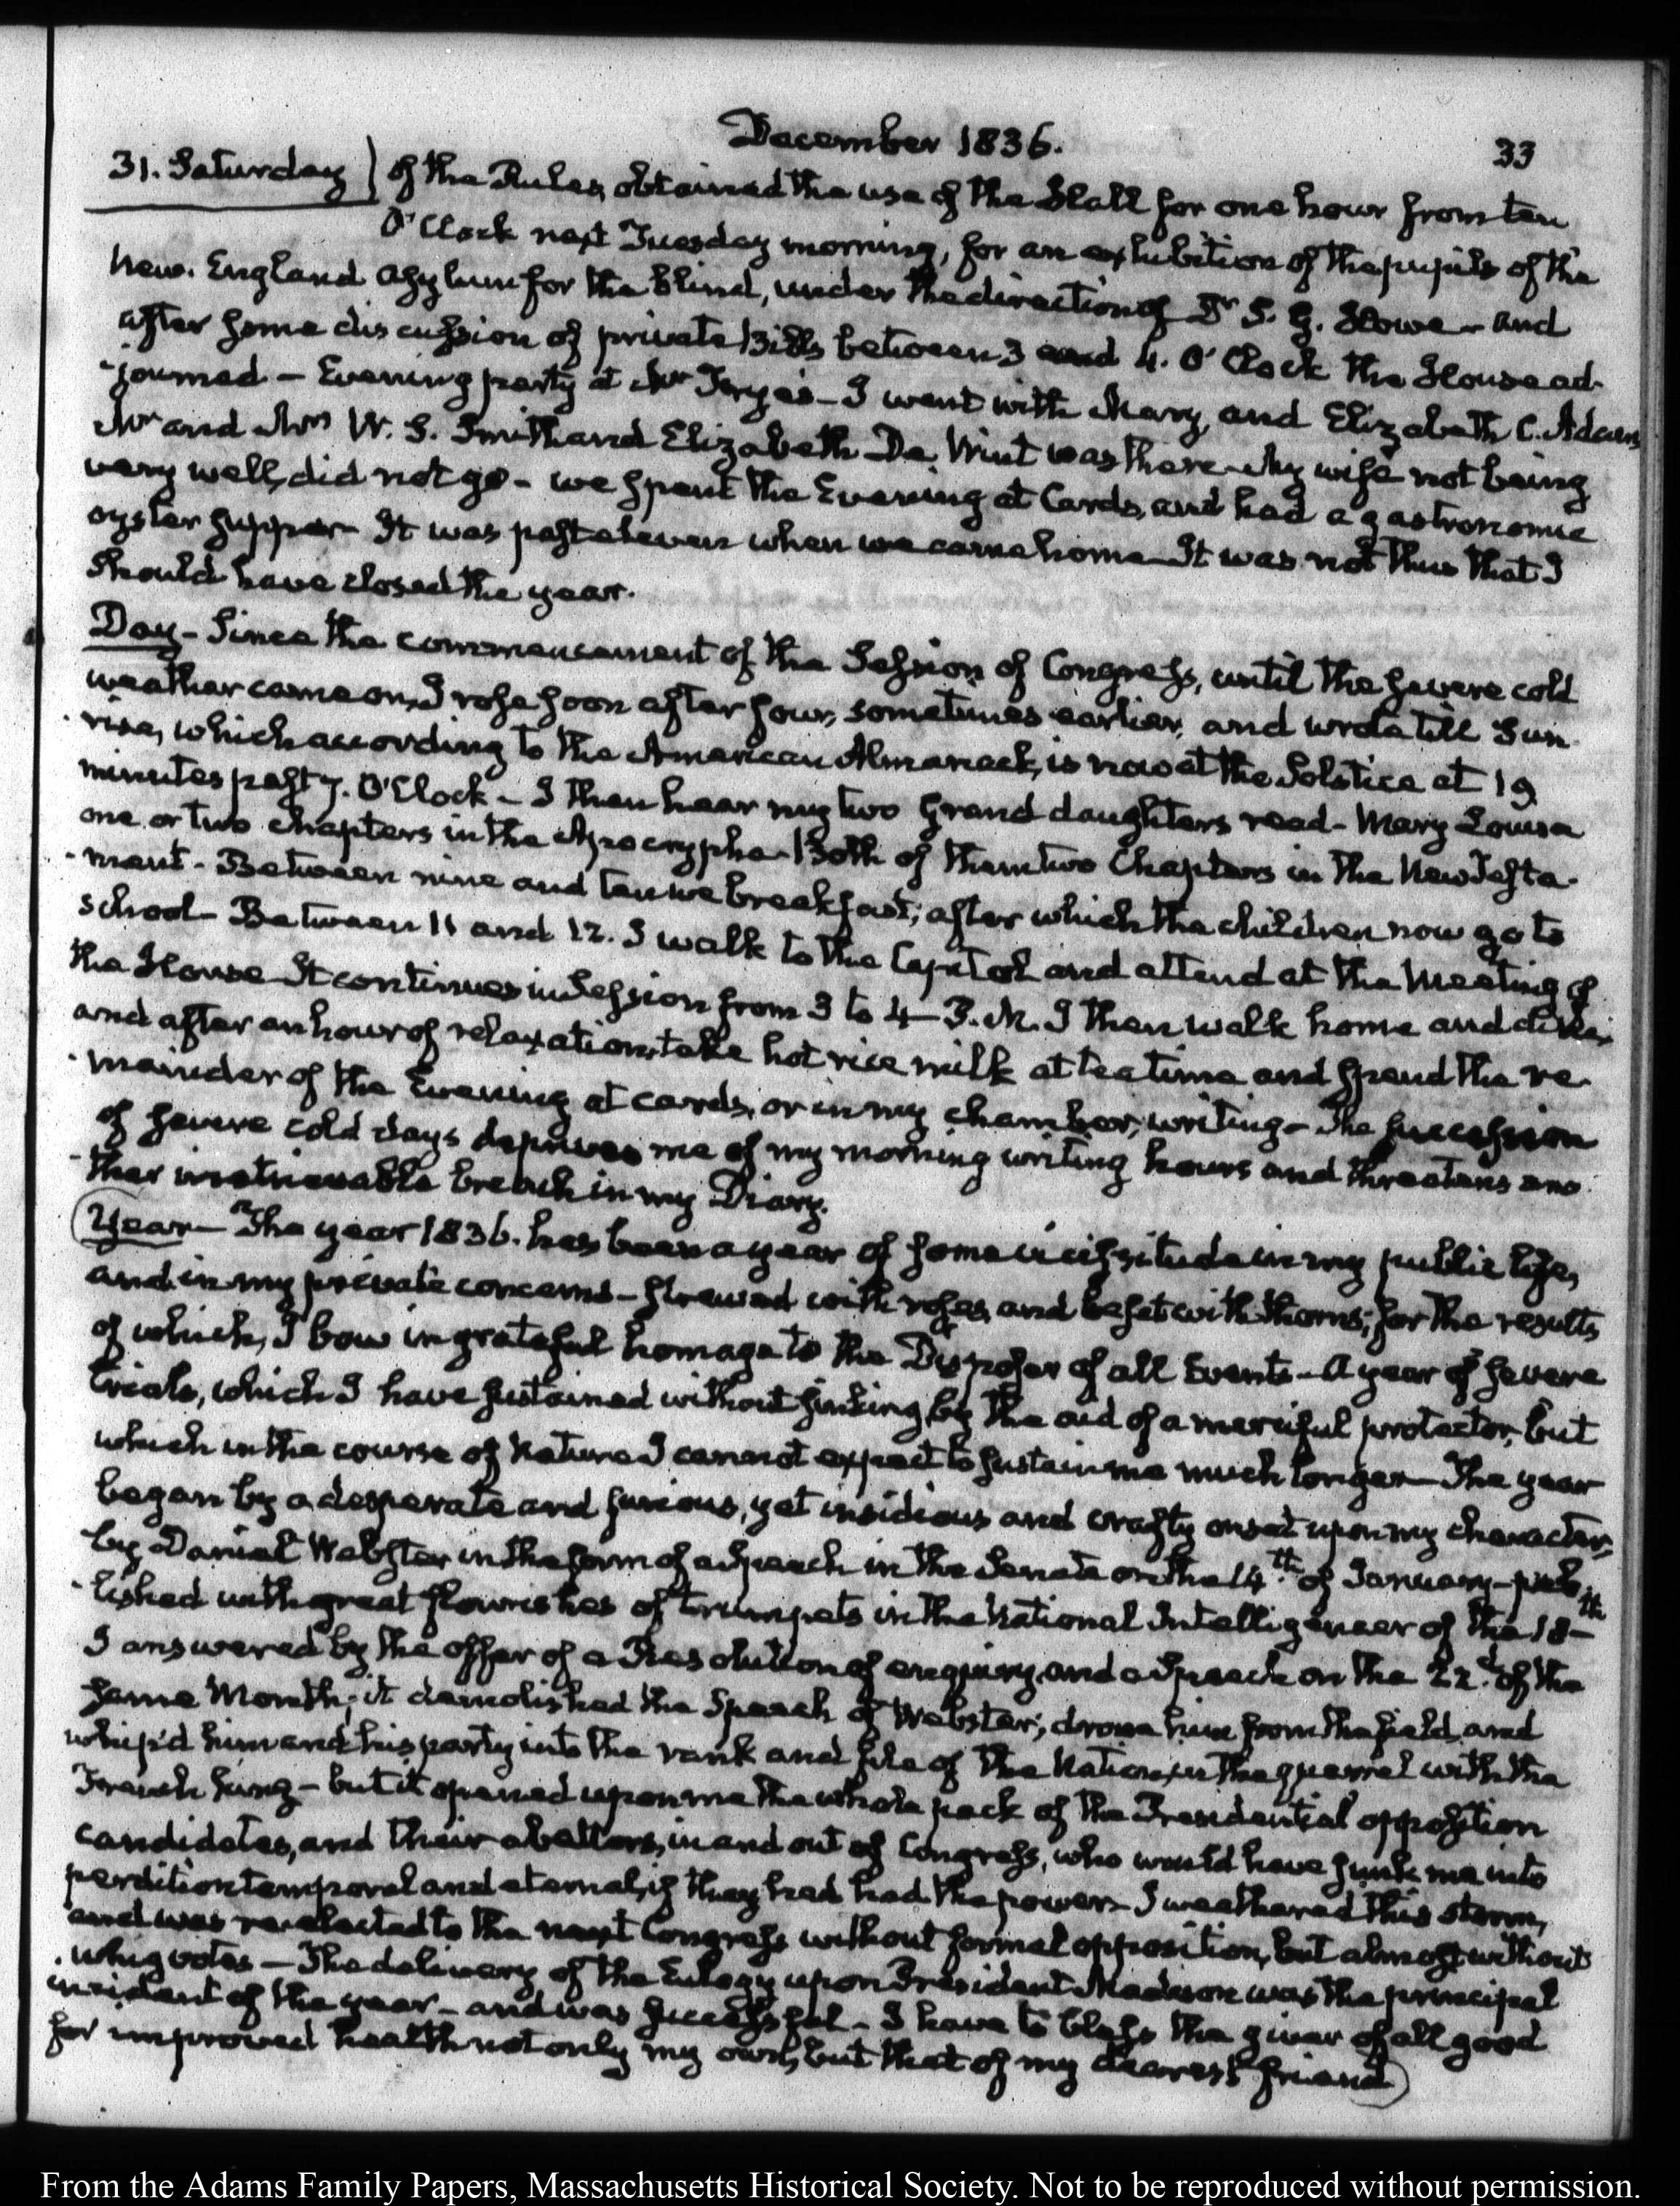 December 1836.
33
31. Saturday } of the Rules, obtained the use of the Hall for one hour from ten
O'Clock next Tuesday morning, for an exhibition of the pupils of the
New-England Asylum for the Blind, under the direction of Dr S. G. Howe - and
after some discussion of private Bills, between 3 and 4. O'Clock the House ad-
-journed - Evening party at Mr Frye's - I went with Mary, and Elizabeth C. Adams
Mr and Mrs W. S. Smith and Elizabeth De Wint was there - My wife not being
very well, did not go - we spent the Evening at Cards, and had a gastronomic
oyster supper - It was past eleven when we came home - It was not thus that I
should have closed the year.
Day - Since the commencement of the Session of Congress, until the severe cold
weather came on, I rose soon after four, sometimes earlier, and wrote till Sun-
-rise, which according to the American Almanack, is now at the Solstice at 19
minutes past 7. O'Clock - I then hear my two Grand daughters read - Mary Louisa
one or two chapters in the Apocrypha - Both of them two Chapters in the New Testa-
-ment - Between nine and ten we breakfast; after which the children now go to
school - Between 11 and 12. I walk to the Capitol and attend at the Meeting of
the House - It continues in Session from 3 to 4 - P.M. I then walk home and dine,
and after an hour of relaxation, take hot rice milk at tea time and spend the re-
-mainder of the Evening at cards, or in my chamber, writing - The succession
of severe cold days deprives me of my morning writing hours and threatens ano-
-ther irretrievable breach in my Diary.
Year - The year 1836. has been a year of some vicissitude in my public life,
and in my private concerns - strewed with roses, and beset with thorns; for the results
of which, I bow in grateful homage to the Disposer of all Events - A year of severe
trials, which I have sustained without sinking by the aid of a merciful protector, but
which in the course of Nature I cannot expect to sustain me much longer - The year
began by a desperate and furious, yet insidious and crafty onset upon my character,
by Daniel Webster in the form of a Speech in the Senate on the 14th of January - pub-
-lished with great flourishes of trumpets in the National Intelligencer of the 18th -
I answered by the offer of a Resolution of enquiry, and a Speech on the 22d of the
same Month; it demolished the Speech of Webster; drove him from the field, and
whip'd him and his party into the rank and file of the Nation, in the quarrel with the
French King - but it opened upon me the whole pack of the Presidential opposition
candidates, and their abettors, in and out of Congress, who would have sunk me into
perdition temporal and eternal, if they had had the power - I weathered this storm,
and was re-elected to the next Congress without formal opposition, but almost without
whig votes - The delivery of the Eulogy upon President Madison was the principal
incident of the year - and was successful - I have to bless the giver of all good
for improved health not only my own, but that of my dearest friend)
From the Adams Family Papers, Massachusetts Historical Society. Not to be reproduced without permission.